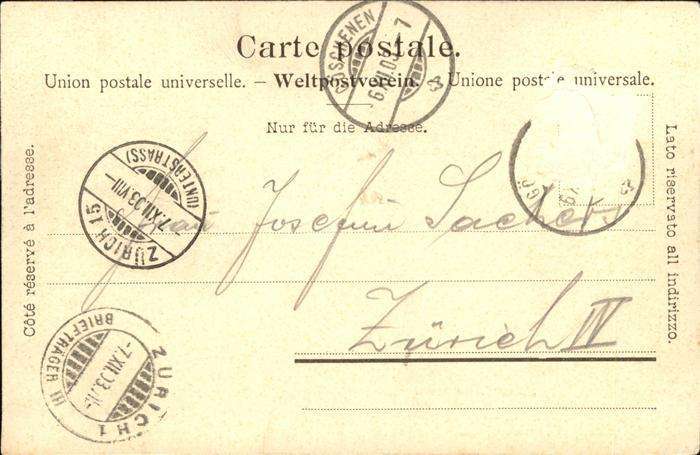 Carte postale.
Union postale universelle. – Weltpostverein. – Unione postale universale.
Nur für die Adresse.
Côté réservé à l'adresse.
Lato riservato all indirizzo.
GÖSCHENEN
6.XII.03. 7
ZÜRICH 15
7.XII.03.VIII–
(UNTERSTRASS)
Frau Josefin Sachers
Zürich IV
ZÜRICH 1
-7.XII.03.
BRIEFTRÄGER